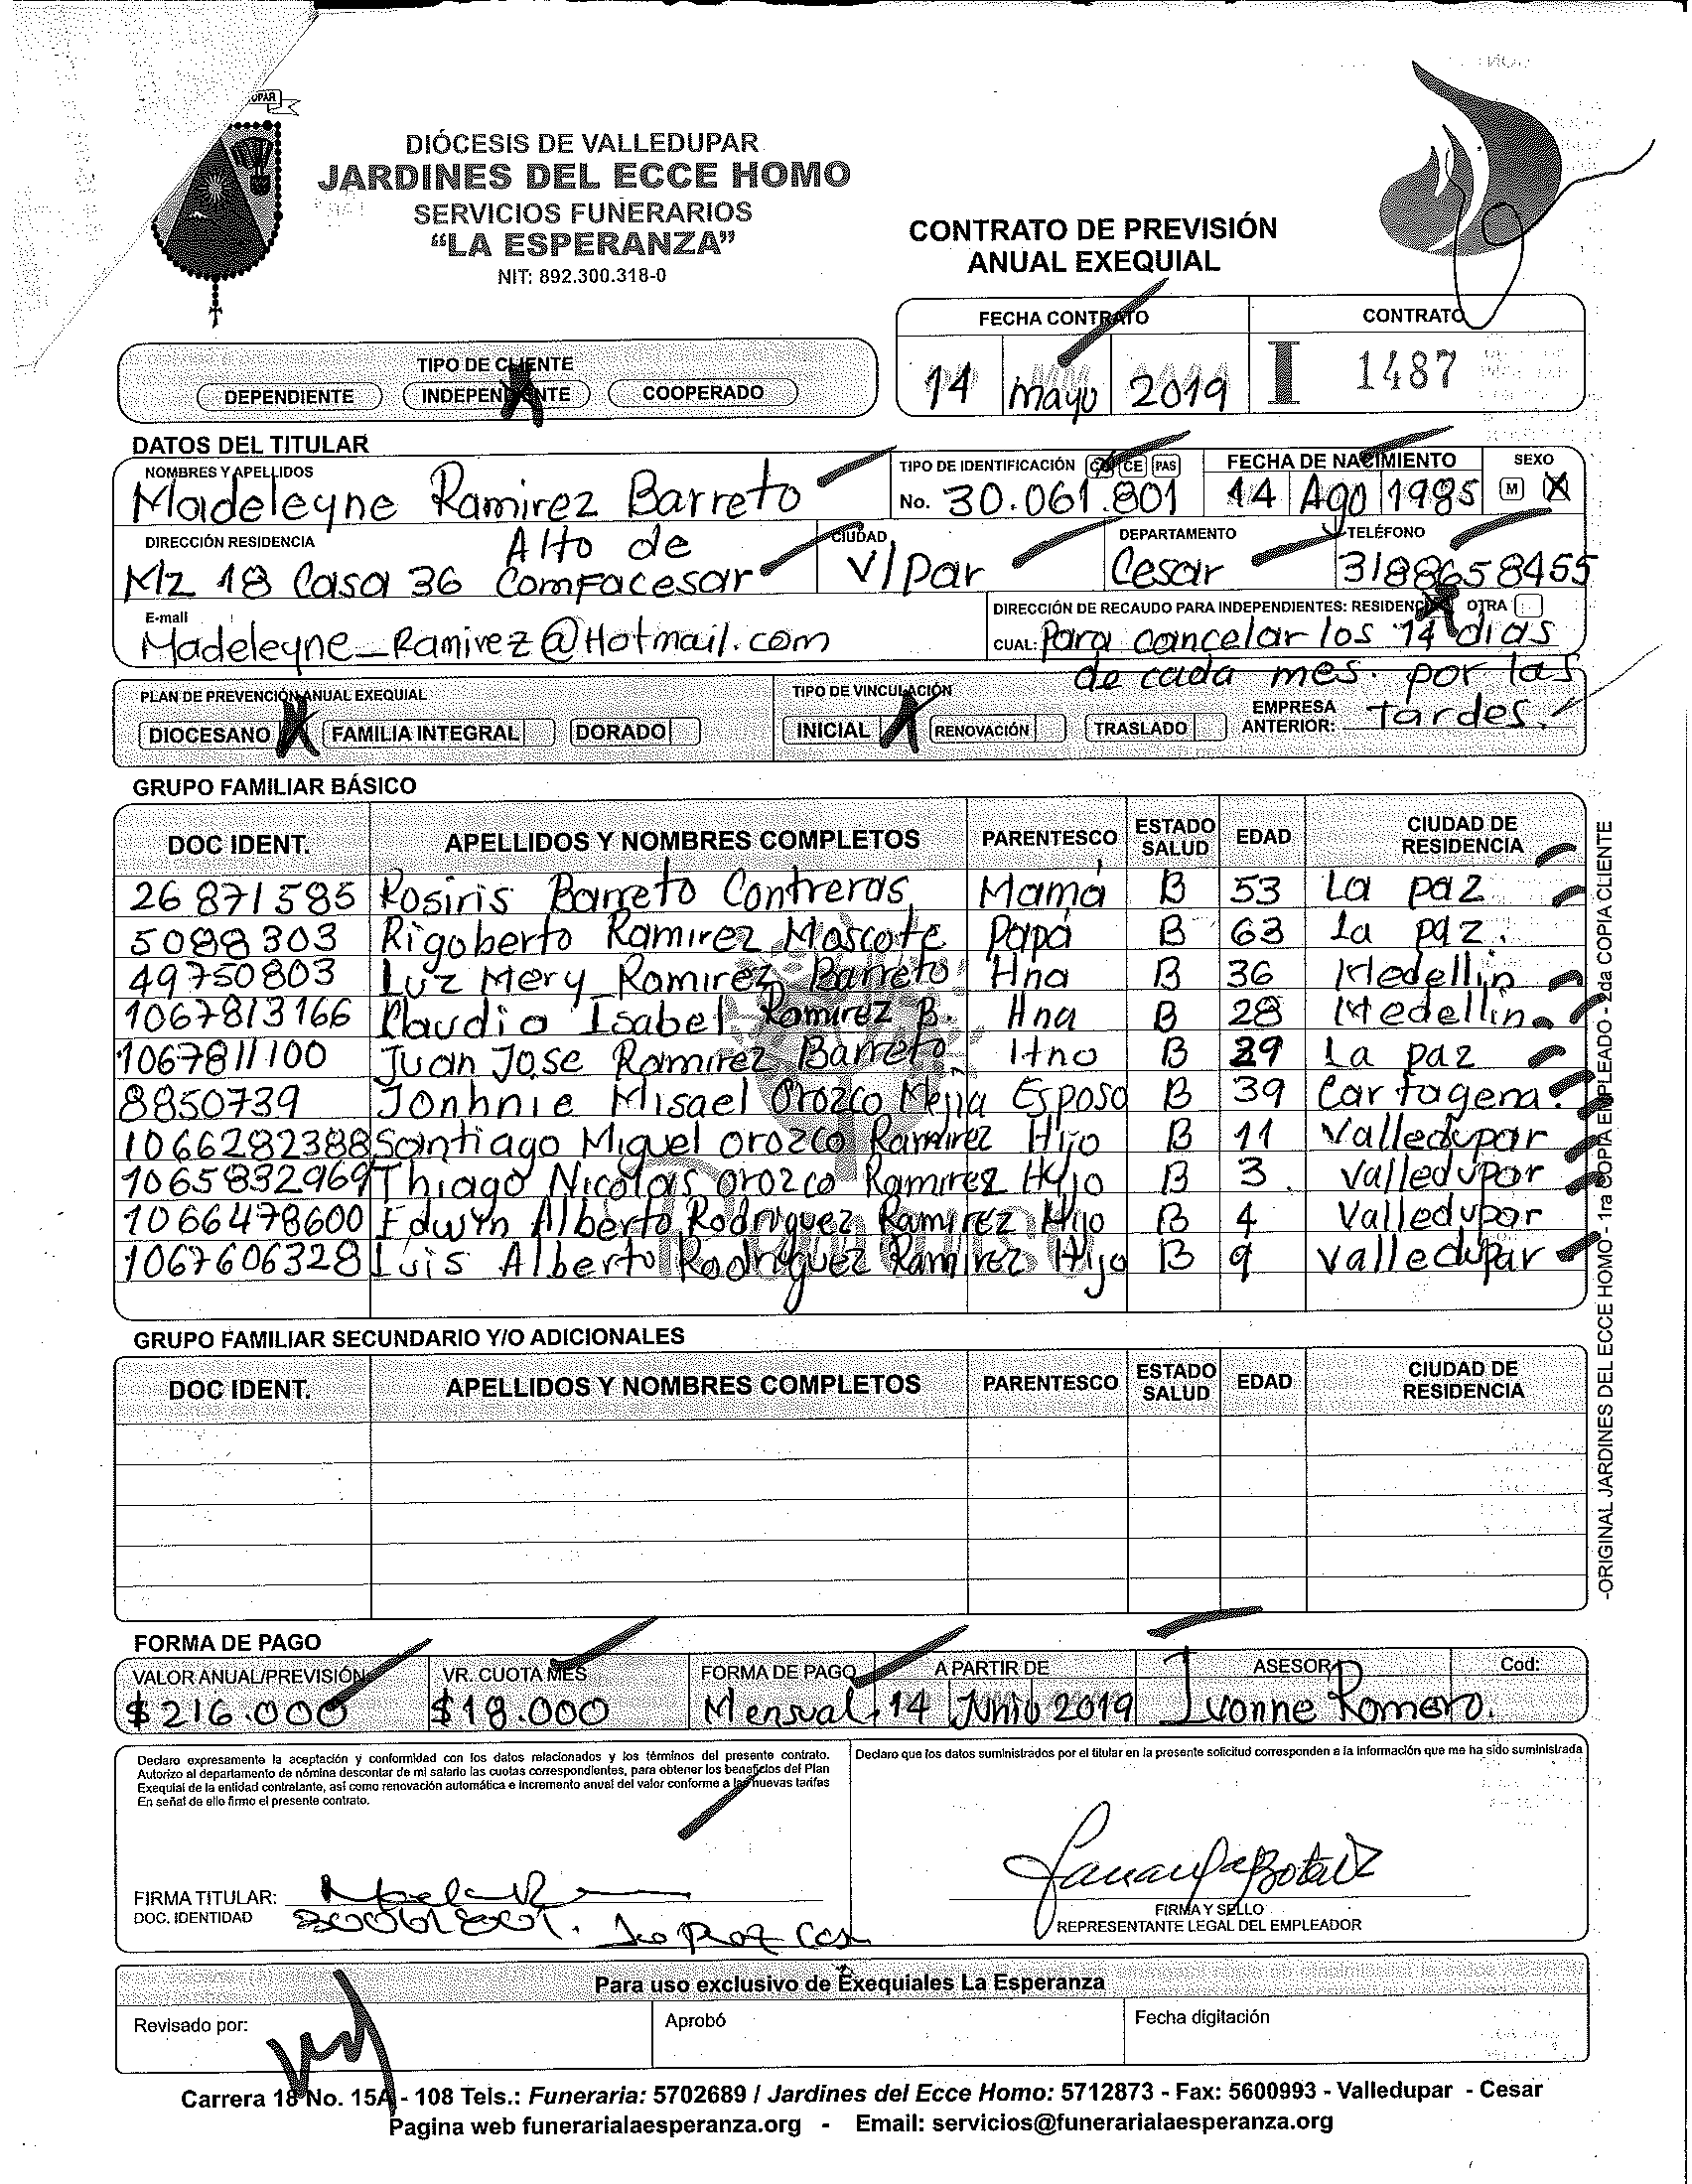 OPAR
DIÓCESIS DE VALLEDUPAR
JARDINES DEL ECCE HOMO
SERVICIOS FUNERARIOS
“LA ESPERANZA”
NIT: 892.300.318-0
CONTRATO DE PREVISIÓN
ANUAL EXEQUIAL
FECHA CONTRATO CONTRATO
14 mayo 2019 I 1487
TIPO DE CLIENTE
DEPENDIENTE INDEPENDIENTE X COOPERADO
DATOS DEL TITULAR
NOMBRES Y APELLIDOS TIPO DE IDENTIFICACIÓN CC CE PAS FECHA DE NACIMIENTO SEXO
Madeleyne Ramirez Barreto No. 30.061.801 14 Ago 1985 M X
DIRECCIÓN RESIDENCIA CIUDAD DEPARTAMENTO TELÉFONO
Alto de
Mz 18 Casa 36 Comfacesar V/par Cesar 3188658455
E-mail DIRECCIÓN DE RECAUDO PARA INDEPENDIENTES: RESIDENCIA X OTRA
Madeleyne_Ramirez@Hotmail.com CUAL: Para cancelar los 14 dias
de cada mes. por las
tardes.
PLAN DE PREVENCIÓN ANUAL EXEQUIAL TIPO DE VINCULACIÓN
DIOCESANO X FAMILIA INTEGRAL DORADO INICIAL X RENOVACIÓN TRASLADO EMPRESA ANTERIOR:
GRUPO FAMILIAR BÁSICO
DOC IDENT. APELLIDOS Y NOMBRES COMPLETOS PARENTESCO ESTADO SALUD EDAD CIUDAD DE RESIDENCIA
26871585 Rosiris Barreto Contreras Mamá B 53 La paz
5088303 Rigoberto Ramirez Mascote Papá B 63 La paz.
49750803 Luz Mery Ramirez Barreto Hna B 36 Medellin
1067813166 Claudia Isabel Ramirez B. Hna B 28 Medellin
1067811100 Juan Jose Ramirez Barreto Hno B 29 La paz
8850739 Jonhnie Misael Orozco Mejia Esposo B 39 Cartagena.
1066282388 Santiago Miguel orozco Ramirez Hijo B 11 Valledupar
1065832969 Thiago Nicolas orozco Ramirez Hijo B 3 Valledupar
1066478600 Edwyn Alberto Rodriguez Ramirez Hijo B 4 Valledupar
1067606328 Luis Alberto Rodriguez Ramirez Hijo B 9 Valledupar
GRUPO FAMILIAR SECUNDARIO Y/O ADICIONALES
DOC IDENT. APELLIDOS Y NOMBRES COMPLETOS PARENTESCO ESTADO SALUD EDAD CIUDAD DE RESIDENCIA
-ORIGINAL JARDINES DEL ECCE HOMO - 1ra COPIA EMPLEADO - 2da COPIA CLIENTE
FORMA DE PAGO
VALOR ANUAL/PREVISIÓN VR. CUOTA MES FORMA DE PAGO A PARTIR DE ASESOR Cod:
$216.000 $18.000 Mensual. 14 Junio 2019 Ivonne Romero.
Declaro expresamente la aceptación y conformidad con los datos relacionados y los términos del presente contrato.
Autorizo al departamento de nómina descontar de mi salario las cuotas correspondientes, para obtener los beneficios del Plan
Exequial de la entidad contratante, así como renovación automática e incremento anual del valor conforme a las nuevas tarifas
En señal de ello firmo el presente contrato.
Declaro que los datos suministrados por el titular en la presente solicitud corresponden a la información que me ha sido suministrada
FIRMA TITULAR:
DOC. IDENTIDAD 30061801.
FIRMA Y SELLO
REPRESENTANTE LEGAL DEL EMPLEADOR
Para uso exclusivo de Exequiales La Esperanza
Revisado por: Aprobó Fecha digitación
Carrera 18 No. 15A - 108 Tels.: Funeraria: 5702689 / Jardines del Ecce Homo: 5712873 - Fax: 5600993 - Valledupar - Cesar
Pagina web funerarialaesperanza.org - Email: servicios@funerarialaesperanza.org